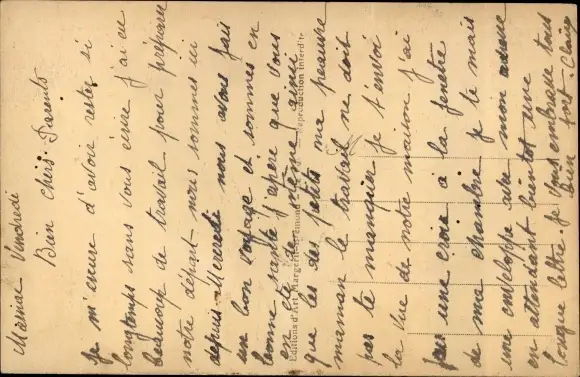 Massiac Vendredi
Bien chers Parents
Je m'excuse d'avoir rester si
longtemps sans vous écrire j'ai eu
beaucoup de travail pour préparer
notre départ nous sommes ici
depuis Mercredi nous avons fais
un bon voyage et sommes en
bonne santé j'espère que vous
en ete de même ainsi
que les des petits ma pauvre
maman le travail ne doit
pas te manquer je t'envoi
la vue de notre maison j'ai
fais une croix a la fenêtre
de ma chambre je te mais
une enveloppe avec mon adresse
en attendant bientot une
longue lettre je vous embrasse tous
bien fort. Claire
Editions d'Art Margerit-Brémond
Reproduction interdite